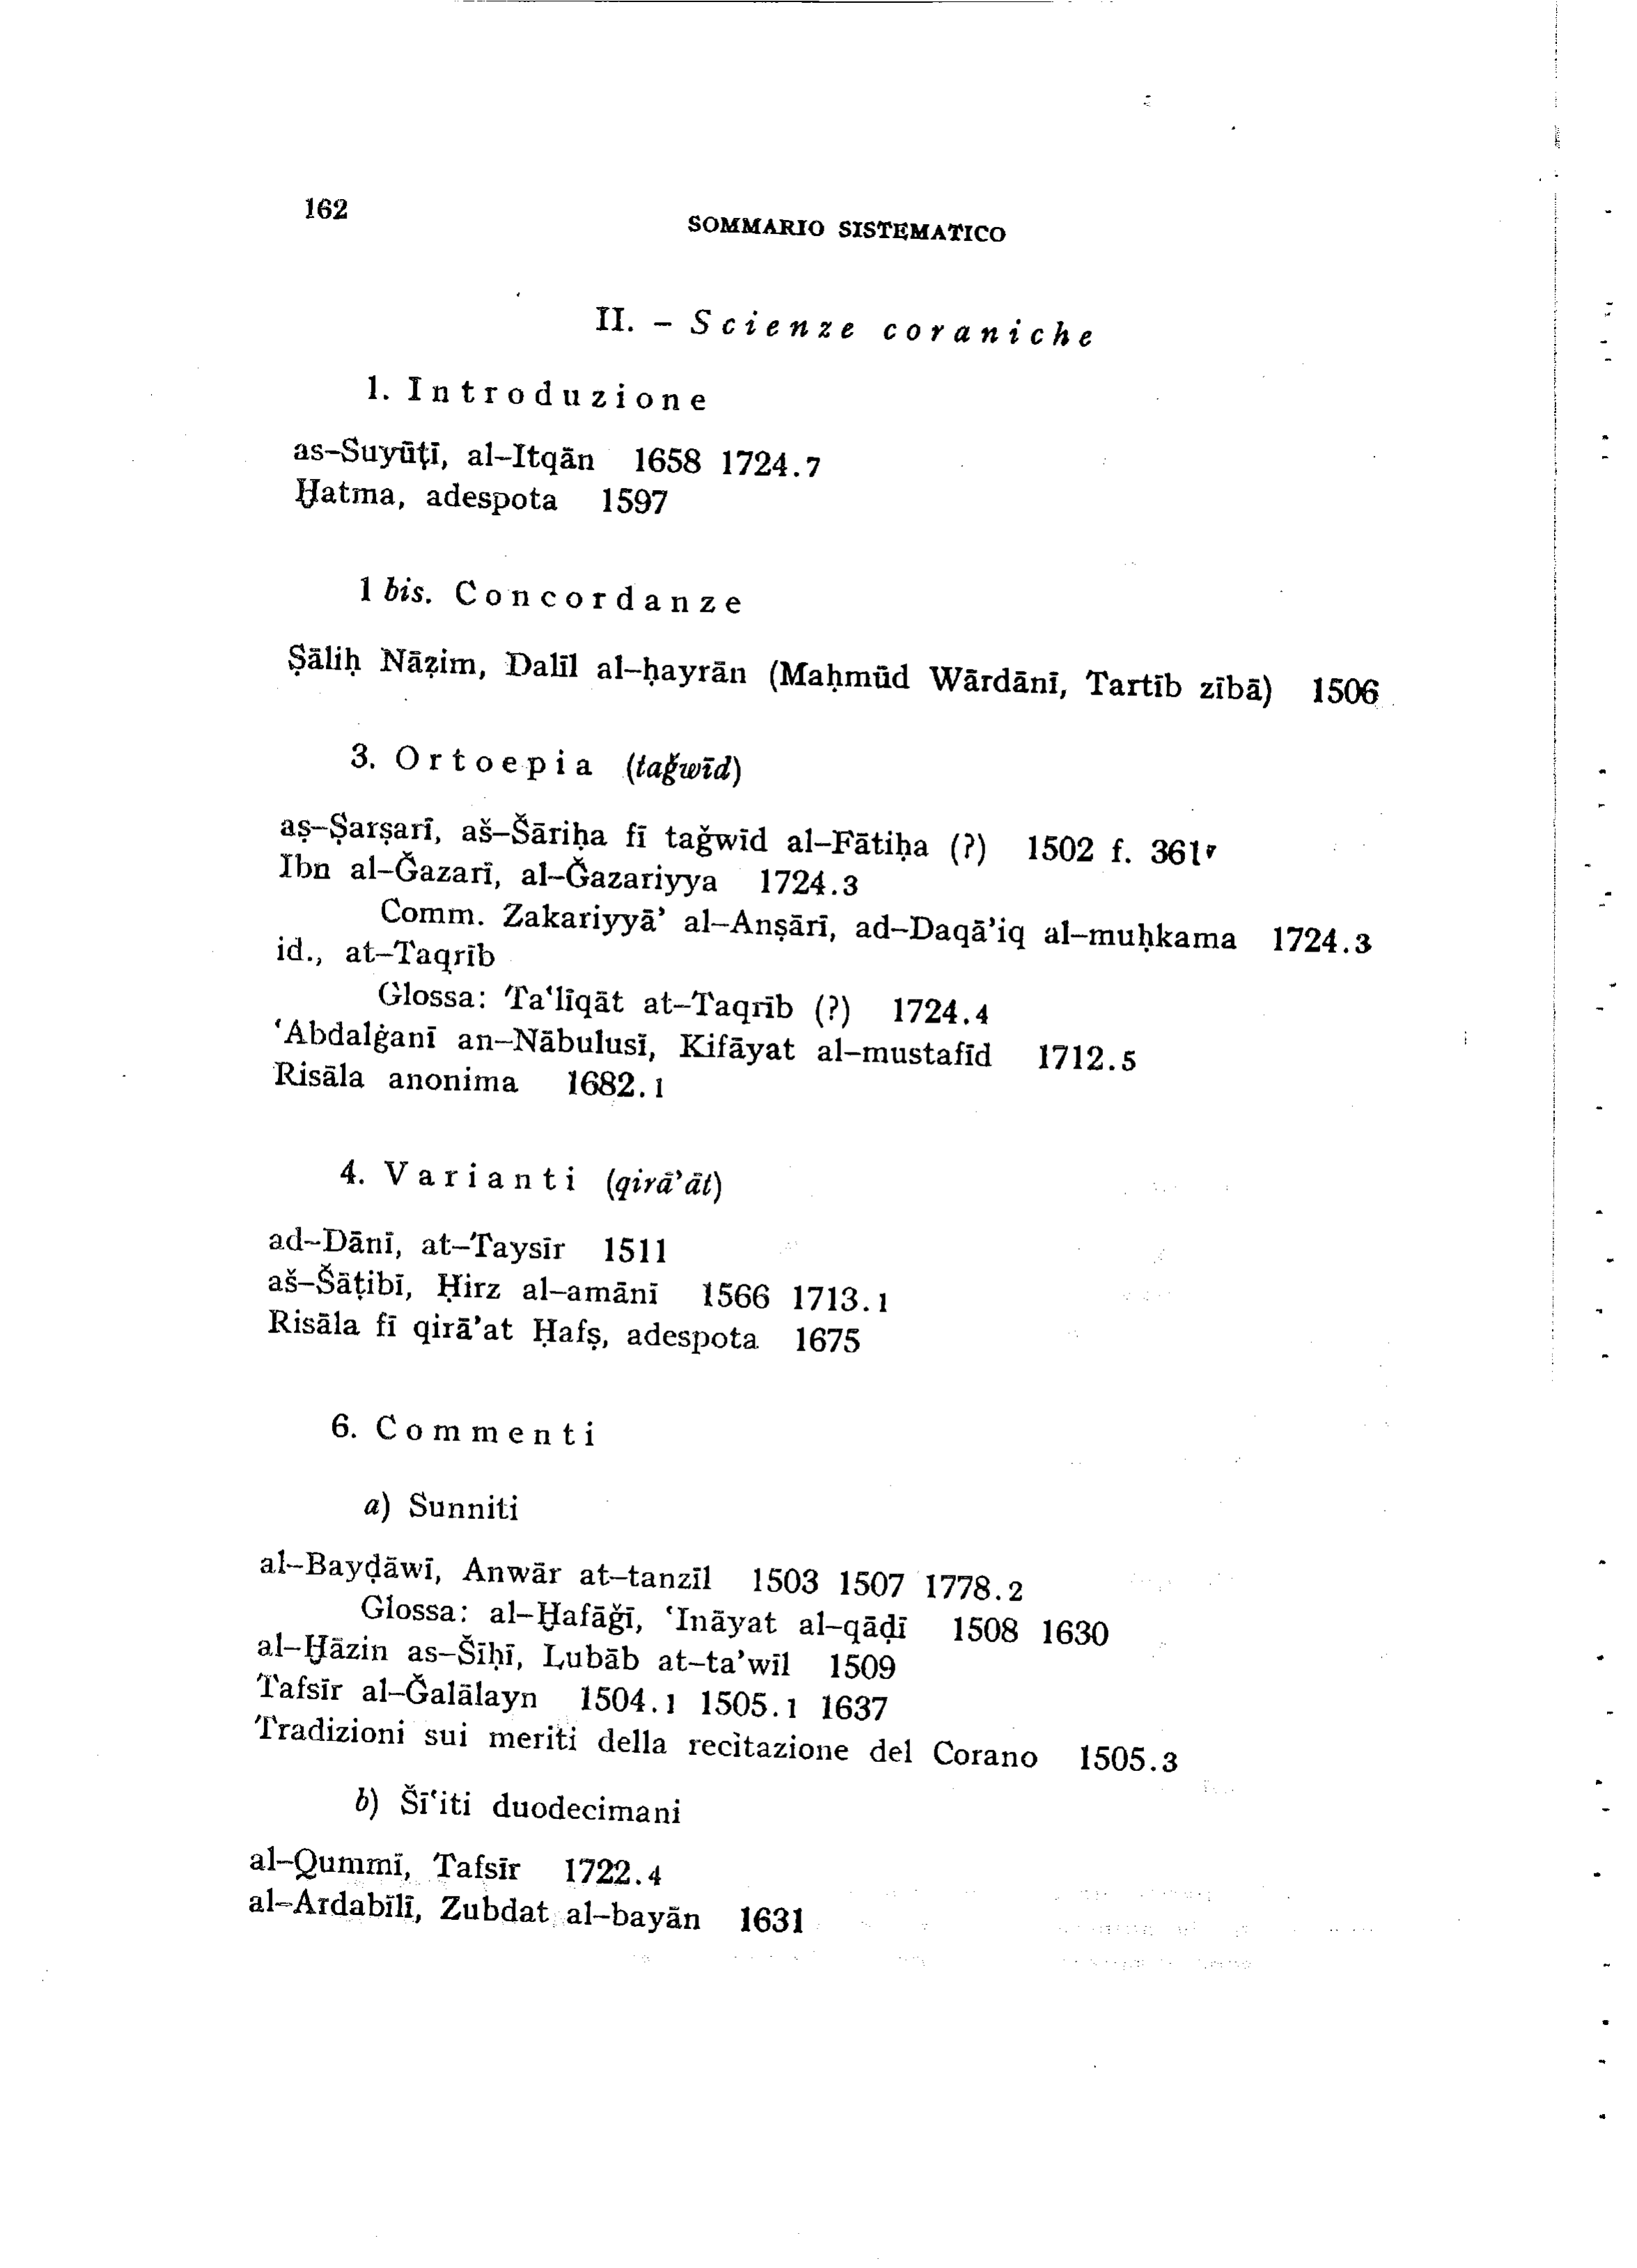 162
SOMMARIO SISTEMATICO
II. – Scienze coraniche
1. Introduzione
as–Suyūṭī, al–Itqān 1658 1724.7
Ḫatma, adespota 1597
1 bis. Concordanze
Ṣāliḥ Nāẓim, Dalīl al–ḥayrān (Maḥmūd Wārdānī, Tartīb zībā) 1506
3. Ortoepia (taǧwīd)
aṣ–Ṣarṣarī, aš–Šāriḥa fī taǧwīd al–Fātiḥa (?) 1502 f. 361r
Ibn al–Ǧazarī, al–Ǧazariyya 1724.3
Comm. Zakariyyā’ al–Anṣārī, ad–Daqā’iq al–muḥkama 1724.3
id., at–Taqrīb
Glossa: Ta‘līqāt at–Taqrīb (?) 1724.4
‘Abdalġanī an–Nābulusī, Kifāyat al–mustafīd 1712.5
Risāla anonima 1682.1
4. Varianti (qirā’āt)
ad–Dānī, at–Taysīr 1511
aš–Šāṭibī, Ḥirz al–amānī 1566 1713.1
Risāla fī qirā’at Ḥafṣ, adespota 1675
6. Commenti
a) Sunniti
al–Bayḍāwī, Anwār at–tanzīl 1503 1507 1778.2
Glossa: al–Ḫafāǧī, ‘Ināyat al–qāḍī 1508 1630
al–Ḫāzin as–Šīḥī, Lubāb at–ta’wīl 1509
Tafsīr al–Ǧalālayn 1504.1 1505.1 1637
Tradizioni sui meriti della recitazione del Corano 1505.3
b) Šī‘iti duodecimani
al–Qummī, Tafsīr 1722.4
al–Ardabīlī, Zubdat al–bayān 1631